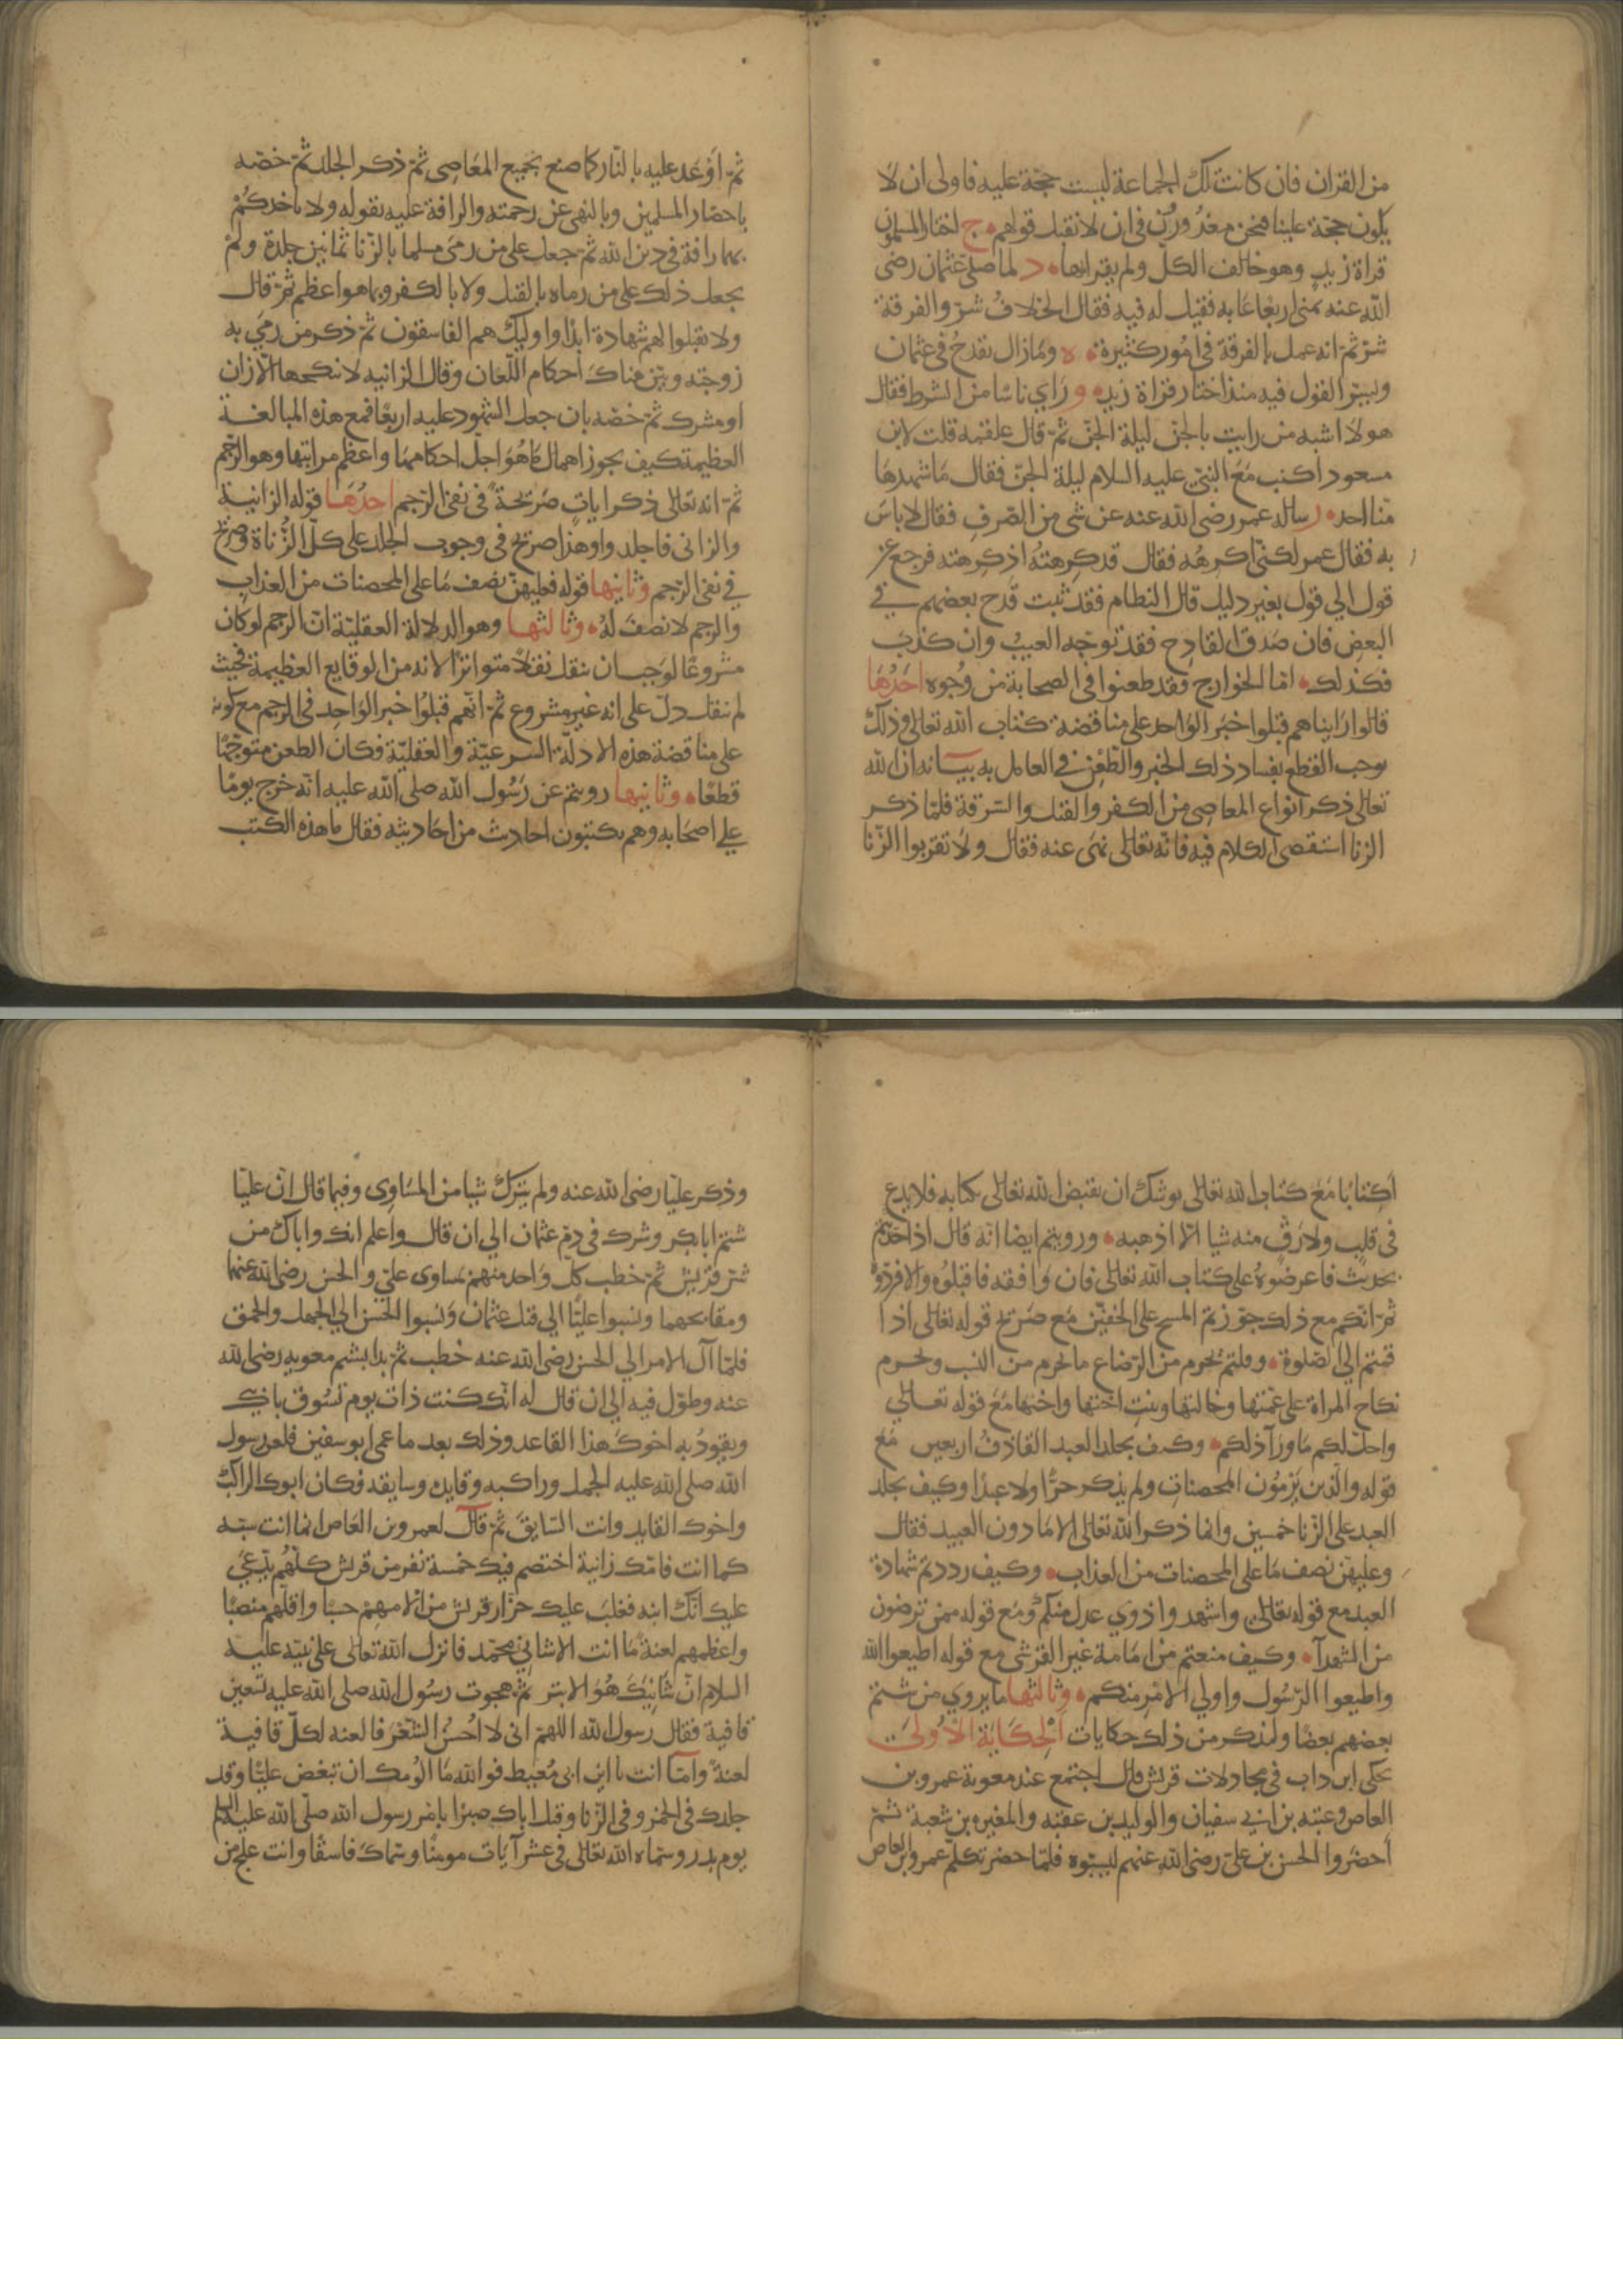 من القران فان كانت تلك الجماعة ليست حجة عليه فاولى ان لا
يكون حجة علينا فنحن معذورون في ان لا نقبل قولهم ج اختار المسلمون
قراة زيد وهو خالف الكل ولم يقرا بها د لما صلى عثمان رضى
الله عنه بمنى اربعا عابه فقيل له فيه فقال الخلاف شر والفرقة
شر ثم انه عمل بالفرقة في امور كثيرة ه وما زال يقدح في عثمان
القول فيه منذ اختار قراة زيد و راي ناسا من الشرط فقال
هولا اشبه من رايت بالجن ليلة الجن ثم قال علقمه قلت لابن
مسعود اكنت مع النبي عليه السلام ليلة الجن فقال ما شهدها
منا احد ز ساله عمر رضى الله عنه عن شى من الصرف فقال لا باس
به فقال عمر لكنى اكرهه فقال قد كرهته اذ كرهته فرجع عن
قول الي قول بغير دليل قال النظام فقد ثبت قدح بعضهم في
البعض فان صدق القادح فقد توجه العيب وان كذب
فكذلك اما الخوارج فقد طعنوا في الصحابة من وجوه احدها
قالوا راينا هم قبلوا خبر الواحد على مناقضة كتاب الله تعالى وذلك
يوجب القطع بفساد ذلك الخبر والطعن في العامل به بيانه ان الله
تعالى ذكر انواع المعاصى من الكفر والقتل والسرقة فلما ذكر
الزنا استقصى الكلام فيه فانه تعالى نهى عنه فقال ولا تقربوا الزنا
ثم اوعد عليه بالنار كما صنع بجميع المعاصى ثم ذكر الجلد ثم خصه
باحضار المسلمين وبالنهى عن رحمته والرافة عليه بقوله ولا ياخذكم
بهما رافة في دين الله ثم جعل على من رمى مسلما بالزنا ثمانين جلدة ولم
يجعل ذلك على من رماه بالقتل ولا بالكفر وبما هو اعظم ثم قال
ولا تقبلوا لهم شهادة ابدا واوليك هم الفاسقون ثم ذكر من رمى به
زوجته وبين هناك احكام اللعان وقال الزانيه لا ينكحها الا زان
او مشرك ثم خصه بان جعل الشهود عليه اربعا فمع هذه المبالغة
العظيمة كيف يجوز اهمال ما هو اجل احكامها واعظم مراتبها وهو الرجم
ثم انه تعالى ذكر ايات صريحة في نفى الرجم احدها قوله الزانية
والزانى فاجلدوا وهذا صريح في وجوب الجلد على كل الزناة وصريح
في نفى الرجم وثانيها قوله فعليهن نصف ما على المحصنات من العذاب
والرجم لا نصف له وثالثها وهو الدلالة العقلية ان الرجم لو كان
مشروعا لوجب ان ينقل نقلا متواترا لانه من الوقايع العظيمة فحيث
لم ينقل دل على انه غير مشروع ثم انهم قبلوا خبر الواحد في الرجم مع كونه
على مناقضة هذه الادلة السرعية والعقلية فكان الطعن متوجها
قطعا وثانيها رويتم عن رسول الله صلى الله عليه انه خرج يوما
علي اصحابه وهم يكتبون احاديث من احاديثه فقال ما هذه الكتب
اكتابا مع كتاب الله تعالى يوشك ان يقبض الله تعالى كتابه فلا يدع
في قلب ولا رق منه شيا الا اذهبه ورويتم ايضا انه قال اذا حدثتم
بحديث فاعرضوه على كتاب الله تعالى فان وافقه فاقبلوه والا فردوه
ثم انكم مع ذلك جوزتم المسح على الخفين مع صريح قوله تعالى اذا
قمتم الي الصلوة وقلتم يحرم من الرضاع ما يحرم من النسب ويحرم
نكاح المراة على عمتها وخالتها وبنت اختها واختها مع قوله تعالي
واحل لكم ما ورآ ذلكم وكيف يجلد العبد القاذف اربعين مع
قوله والذين يرمون المحصنات ولم يذكر حرا ولا عبدا وكيف يجلد
العبد على الزنا خمسين وانما ذكر الله تعالى الاما دون العبيد فقال
وعليهن نصف ما على المحصنات من العذاب وكيف رددتم شهادة
العبد مع قوله تعالى واشهدوا ذوي عدل منكم ومع قوله ممن ترضون
من الشهدآ وكيف منعتم من امامة غير القرشى مع قوله اطيعوا الله
واطيعوا الرسول واولي الامر منكم وثالثها ما يروي من شتم
بعضهم بعضا ولنذكر من ذلك حكايات الحكاية الاولى
حكى ابن داب في مجادلات قريش قال اجتمع عند معوية عمرو بن
العاص وعتبه بن ابي سفيان والوليد بن عقبه والمغيره بن شعبة ثم
احضروا الحسن بن على رضى الله عنهم ليسبوه فلما حضر تكلم عمرو بن العاص
وذكر عليا رضى الله عنه ولم يترك شيا من المساوى وفيما قال ان عليا
شتم ابا بكر وشرك في دم عثمان الي ان قال واعلم انك واباك من
شر قريش ثم خطب كل واحد منهم بمساوى على والحسن رضى الله عنهما
ومقابحهما ونسبوا عليا الي قتل عثمان ونسبوا الحسن الي الجهل والحمق
فلما آل الامر الي الحسن رضى الله عنه خطب ثم بدا بشتم معويه رضى الله
عنه وطول فيه الي ان قال له انك كنت ذات يوم تسوق بابيك
ويقود به اخوك هذا القاعد وذلك بعد ما عمى ابو سفين فلعن رسول
الله صلى الله عليه الجمل وراكبه وقايده وسايقه فكان ابوك الراكب
واخوك القايد وانت السايق ثم قال لعمرو بن العاص انما انت سبه
كما انت فامك زانية اختصم فيك خمسة نفر من قريش كلهم يدعى
عليك انك ابنه فغلب عليك جزار قريش من الامهم حسبا واقلهم منصبا
واعظمهم لعنة ما انت الا شانى محمد فانزل الله تعالى على نبيه عليه
السلام ان شانيك هو الابتر ثم هجوت رسول الله صلى الله عليه تسعين
قافية فقال رسول الله اللهم انى لا احسن الشعر فالعنه لكل قافية
لعنة واما انت يا ابن ابى معيط فوالله ما الومك ان تبغض عليا وقد
جلدك في الخمر وفي الزنا وقتل اباك صبرا بامر رسول الله صلى الله عليه السلم
يوم بدر وسماه الله تعالى في عشر آيات مومنا وسماك فاسقا وانت علج من